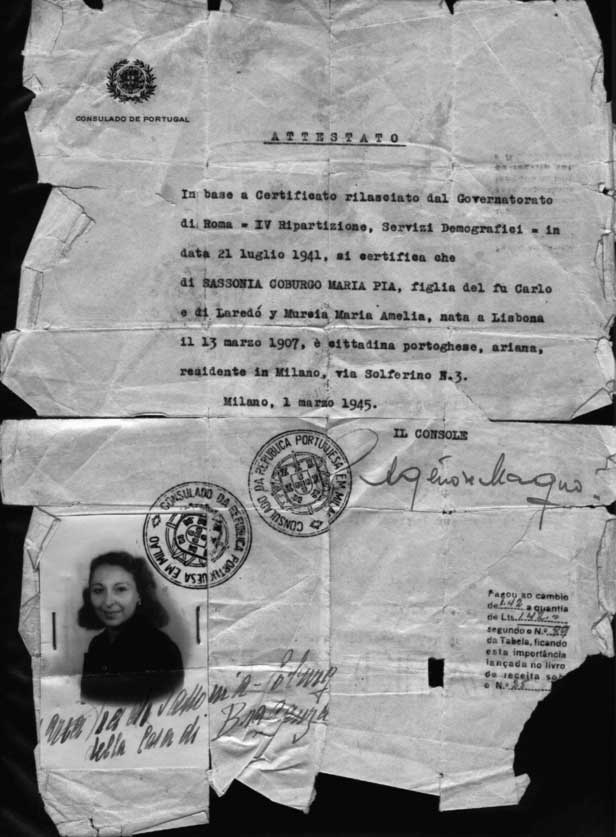 CONSULADO DE PORTUGAL
ATTESTATO
In base a Certificato rilasciato dal Governatorato
di Roma = IV Ripartizione, Servizi Demografici = in
data 21 luglio 1941, si certifica che
di SASSONIA COBURGO MARIA PIA, figlia del fu Carlo
e di Laredó y Mursia Maria Amelia, nata a Lisbona
il 13 marzo 1907, è cittadina portoghese, ariana,
residente in Milano, via Solferino N.3.
Milano, 1 marzo 1945.
IL CONSOLE
CONSULADO DA REPUBLICA PORTUGUESA EM MILÃO
CONSULADO DA REPUBLICA PORTUGUESA EM MILÃO
Pagou ao cambio
de 1.42 a quantia
de Lts. 142
segundo o N.º
da Tabela, ficando
esta importância
lançada no livro
de receita sob
o N.º
Maria Pia di Sassonia-Coburg
della Casa di Braganza